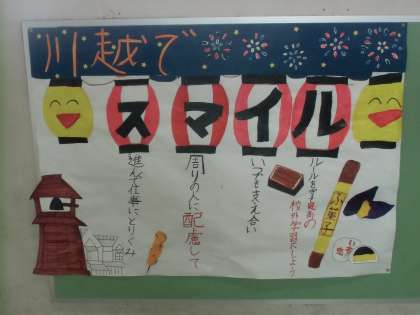 川越で
スマイル
進んで仕事にとりくみ
周りの人に配慮して
いつも支え合い
ルールを守り最高の
校外学習にしよう
ふ菓子